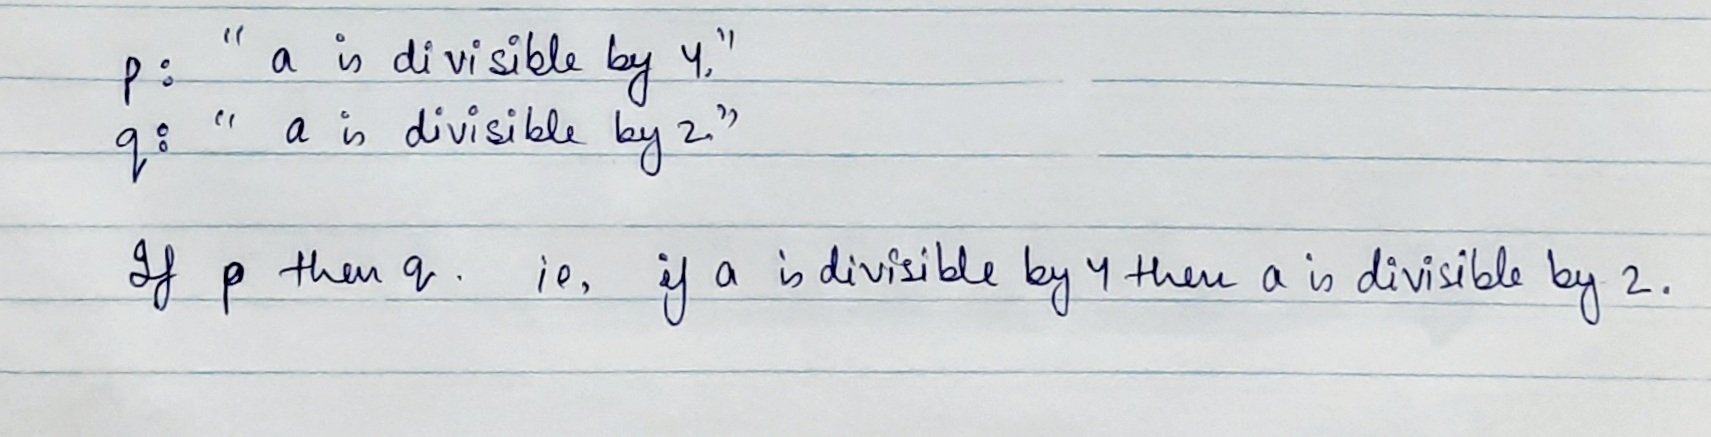 p: "a is divisible by 4."
q: "a is divisible by 2."
If p then q. ie, if a is divisible by 4 then a is divisible by 2.